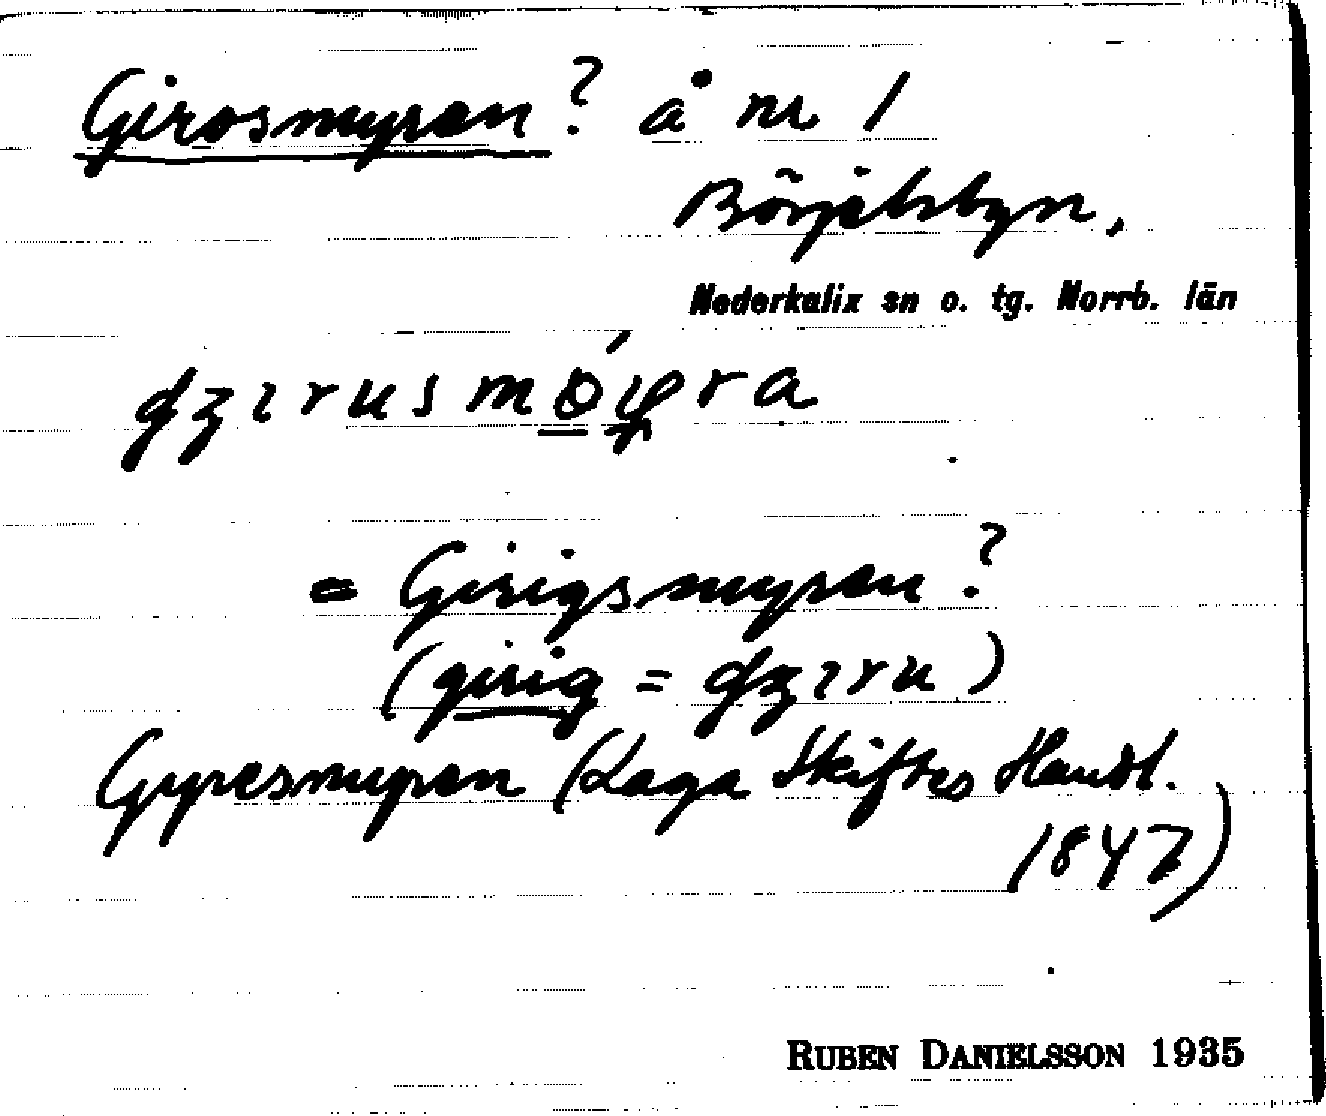 Girosmyran? å nr 1
Börjelsbyn,
Nederkalix sn o. tg. Norrb. län
= Girigsmyran?
(girig = dʒıru)
Gyresmyran (Laga Skiftes Handl.
1847)
RUBEN DANIELSSON 1935